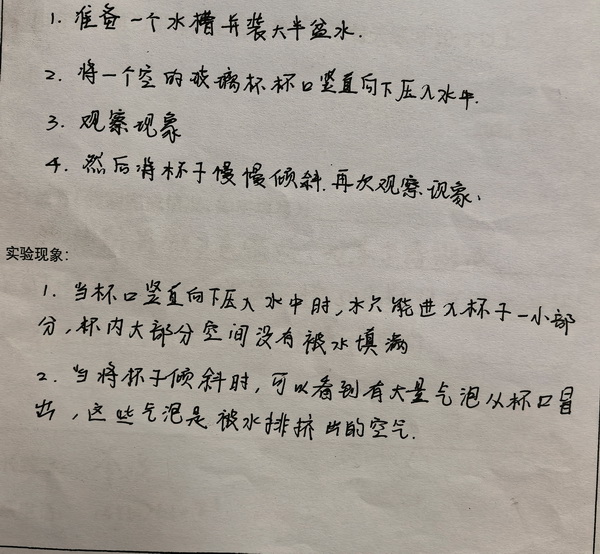 1. 准备一个水槽并装大半盆水.
2. 将一个空的玻璃杯杯口竖直向下压入水中.
3. 观察现象
4. 然后将杯子慢慢倾斜.再次观察现象.
实验现象:
1. 当杯口竖直向下压入水中时,水只能进入杯子一小部
分,杯内大部分空间没有被水填满
2. 当将杯子倾斜时,可以看到有大量气泡从杯口冒
出,这些气泡是被水排挤出的空气.